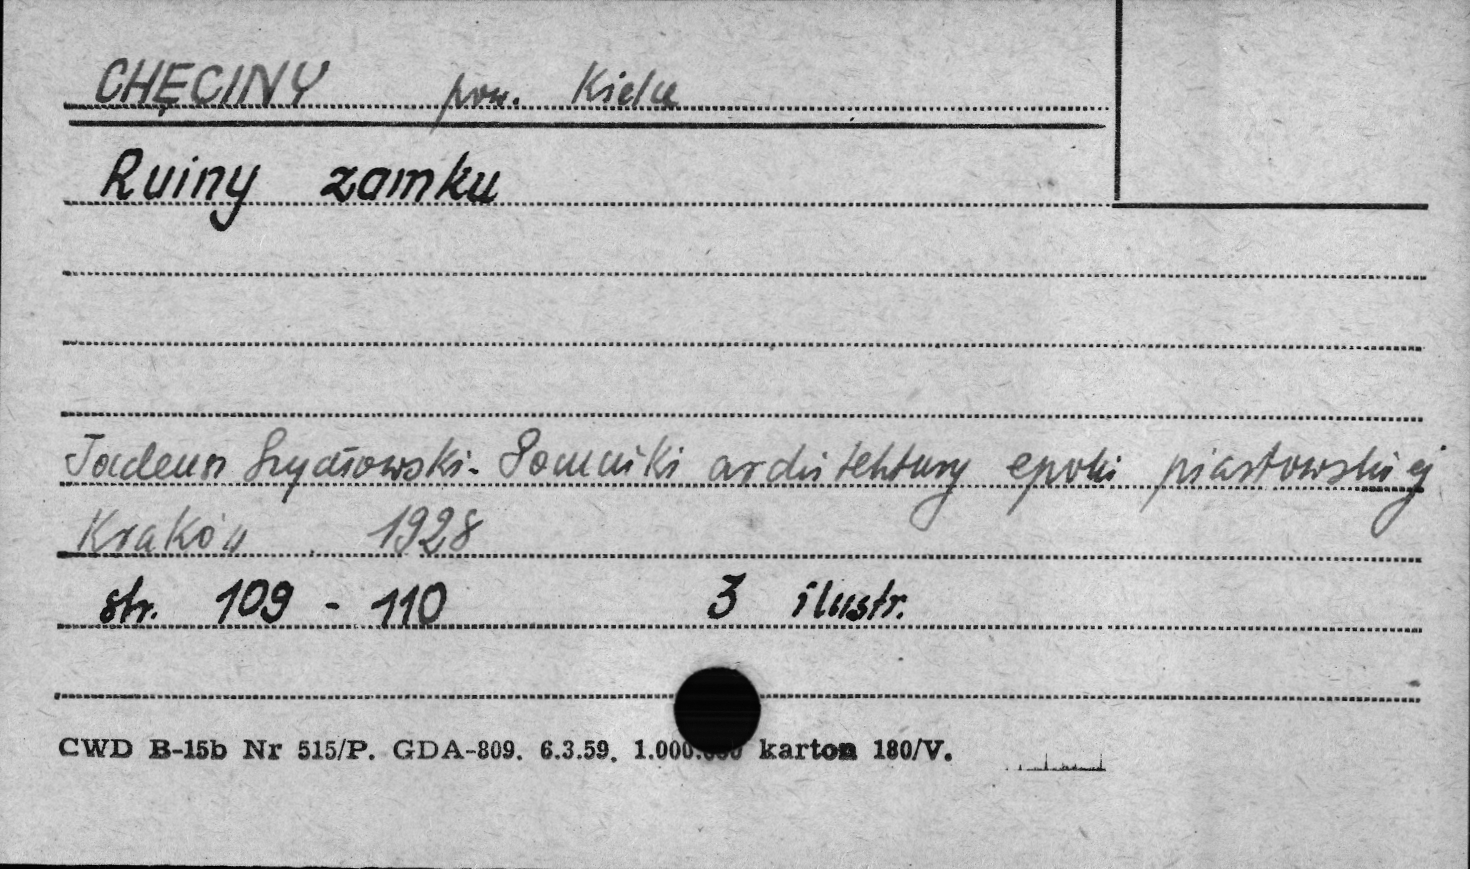 CHĘCINY pow. Kielce
Ruiny zamku
Tadeusz Szydłowski - Pomniki architektury epoki piastowskiej
Kraków 1928
str. 109 - 110 3 ilustr.
CWD B-15b Nr 515/P. GDA-809. 6.3.59. 1.000.000 karton 180/V.